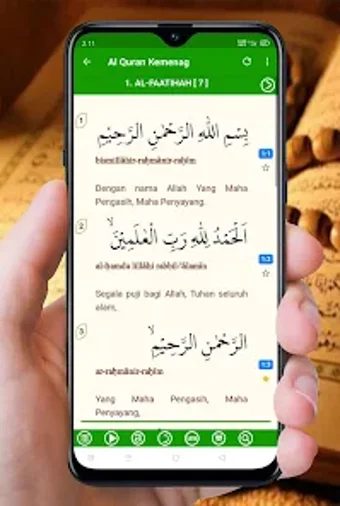 2.11
Al Quran Kemenag
1. AL-FAATIHAH [ 7 ]
1
بِسْمِ اللّٰهِ الرَّحْمٰنِ الرَّحِيْمِ
1:1
bismillāhir-raḥmānir-raḥīm
Dengan nama Allah Yang Maha
Pengasih, Maha Penyayang.
2
اَلْحَمْدُ لِلّٰهِ رَبِّ الْعٰلَمِيْنَۙ
1:2
al-ḥamdu lillāhi rabbil-'ālamīn
Segala puji bagi Allah, Tuhan seluruh
alam,
3
الرَّحْمٰنِ الرَّحِيْمِۙ
1:3
ar-raḥmānir-raḥīm
Yang Maha Pengasih, Maha
Penyayang,